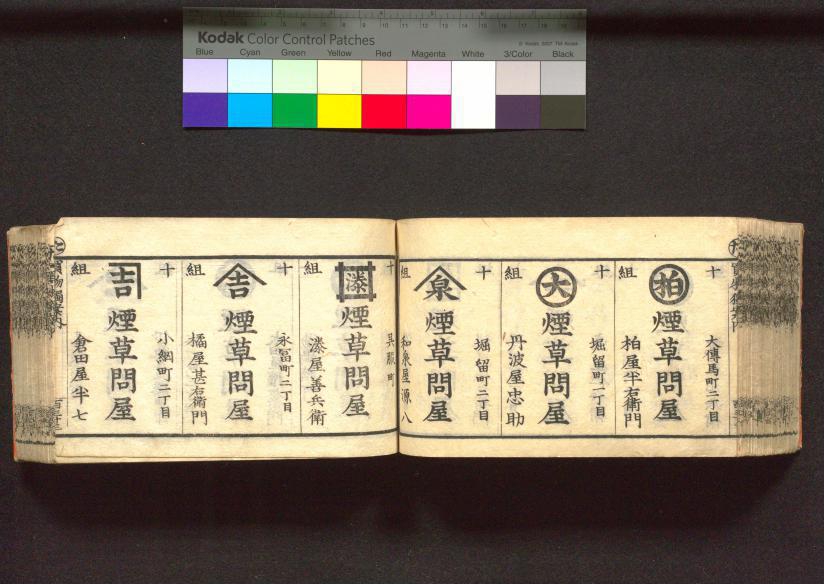 Kodak Color Control Patches
© Kodak, 2007 TM: Kodak
Blue Cyan Green Yellow Red Magenta White 3/Color Black
十組
大傳馬町二丁目
柏
煙草問屋
柏屋半右衛門
十組
堀留町二丁目
大
煙草問屋
丹波屋忠助
十組
堀留町二丁目
泉
煙草問屋
和泉屋源八
十組
呉服町
漆
煙草問屋
漆屋善兵衛
十組
永冨町二丁目
吉
煙草問屋
橘屋甚右衛門
十組
小網町二丁目
吉
煙草問屋
倉田屋半七
買物獨案内